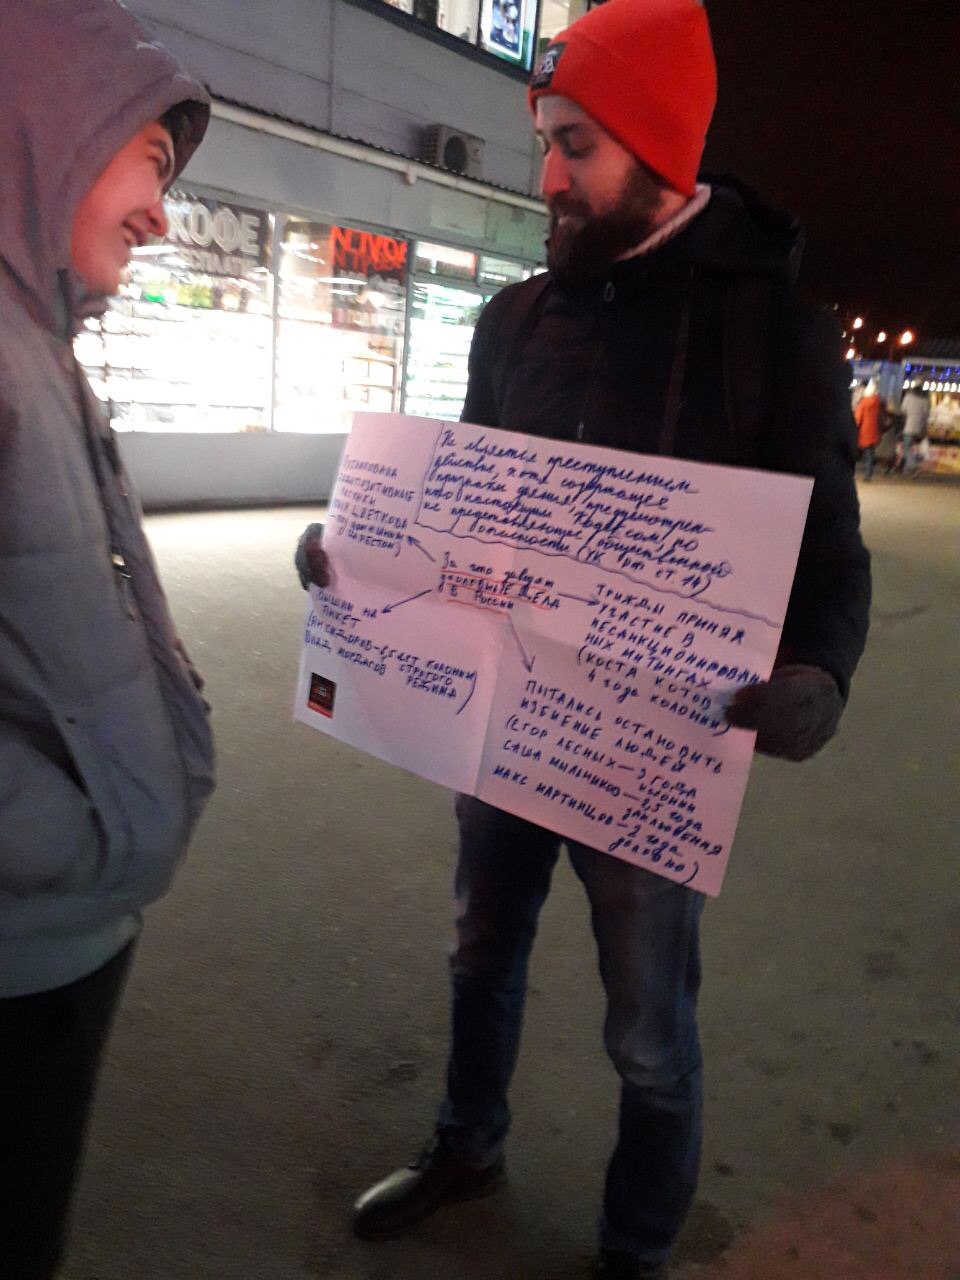 КОФЕ
Не является преступлением
действие, хотя содержащее
признаки деяния, предусмотрен-
ного настоящим Кодексом, но
не представляющее общественной
опасности (УК РФ ст. 14)
Публиковала
бодипозитивные
рисунки
Цветкова
под домашним
арестом)
За что заводят
уголовные дела
в России
Вышли на
пикет
(Янсидоров - 6,5 лет колонии
Влад Мордасов строгого
режима)
Трижды принял
участие в
несанкционирован
ных митингах
(Коста Котов
4 года колонии)
Пытались остановить
избиение людей
(Егор Лесных - 3 года
колонии
Саша Мыльников - 2,5 года
заключения
Макс Мартинцов - 2 года
условно)